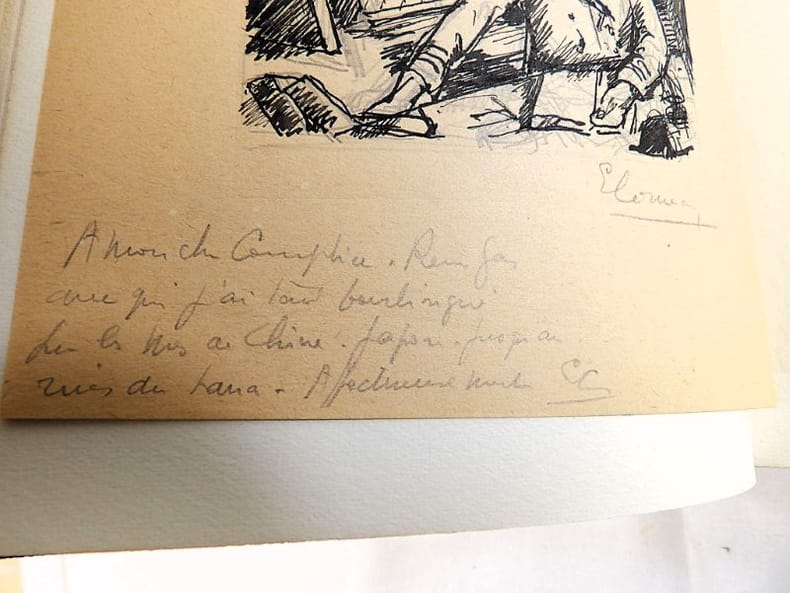 A mon cher Complice.
avec qui j'ai tant bourlingué
sur les mers de Chine. Japon. jusqu'au
rives du Affectueusement